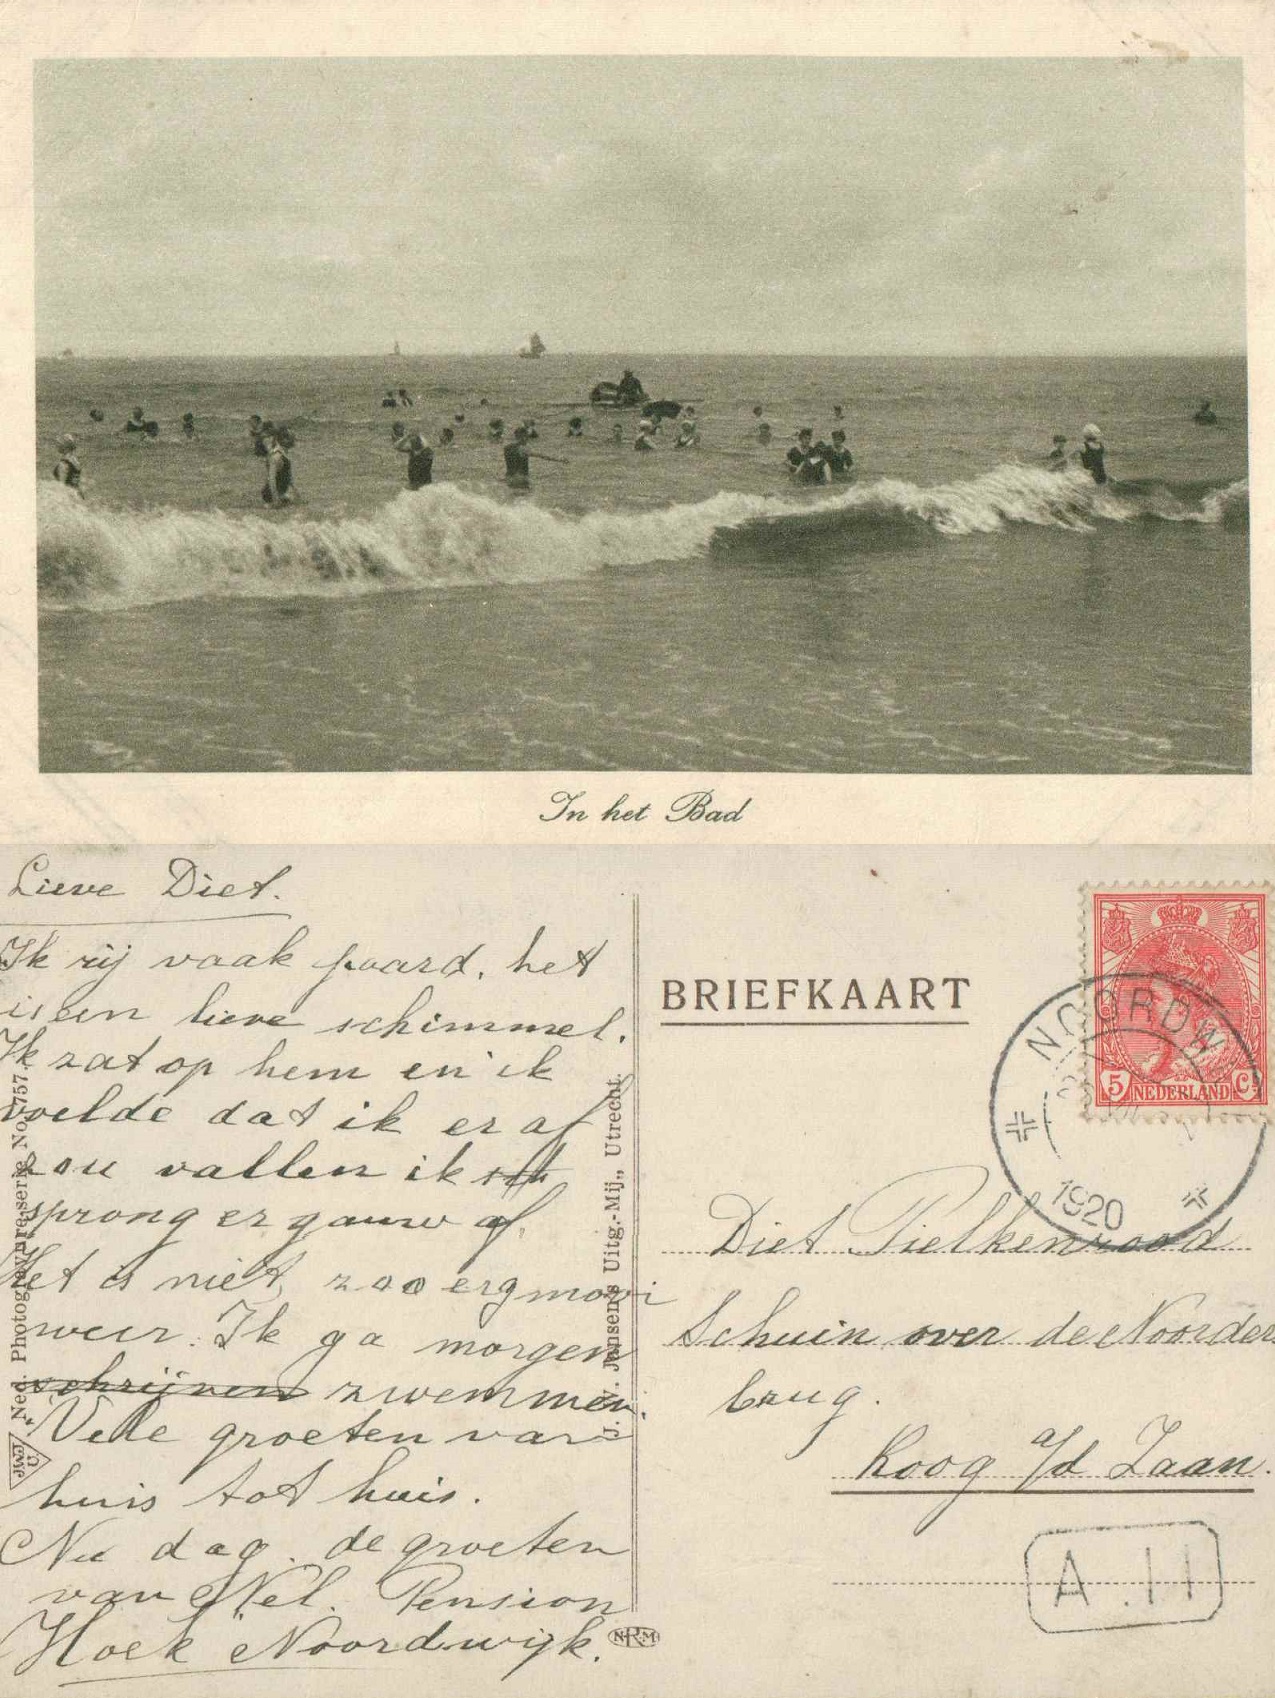 In het Bad
Lieve Diet.
Ik rij vaak paard, het
is een lieve schimmel.
Ik zat op hem en ik
voelde dat ik er af
zou vallen ik
sprong er gauw af.
Het is niet zoo erg mooi
weer. Ik ga morgen
schrijven zwemmen.
Vele groeten van
huis tot huis.
Nu dag. de groeten
van Nel. Pension
Hoek Noordwijk.
"Ned. Photogravure serie No. 757.
J. V. Jansen's Uitg.-Mij., Utrecht.
NRM
BRIEFKAART
5 NEDERLAND C
NOORDW
1920
Diet Pielkenrood
Schuin over de Noorder
brug.
Koog a/d Zaan.
A.11